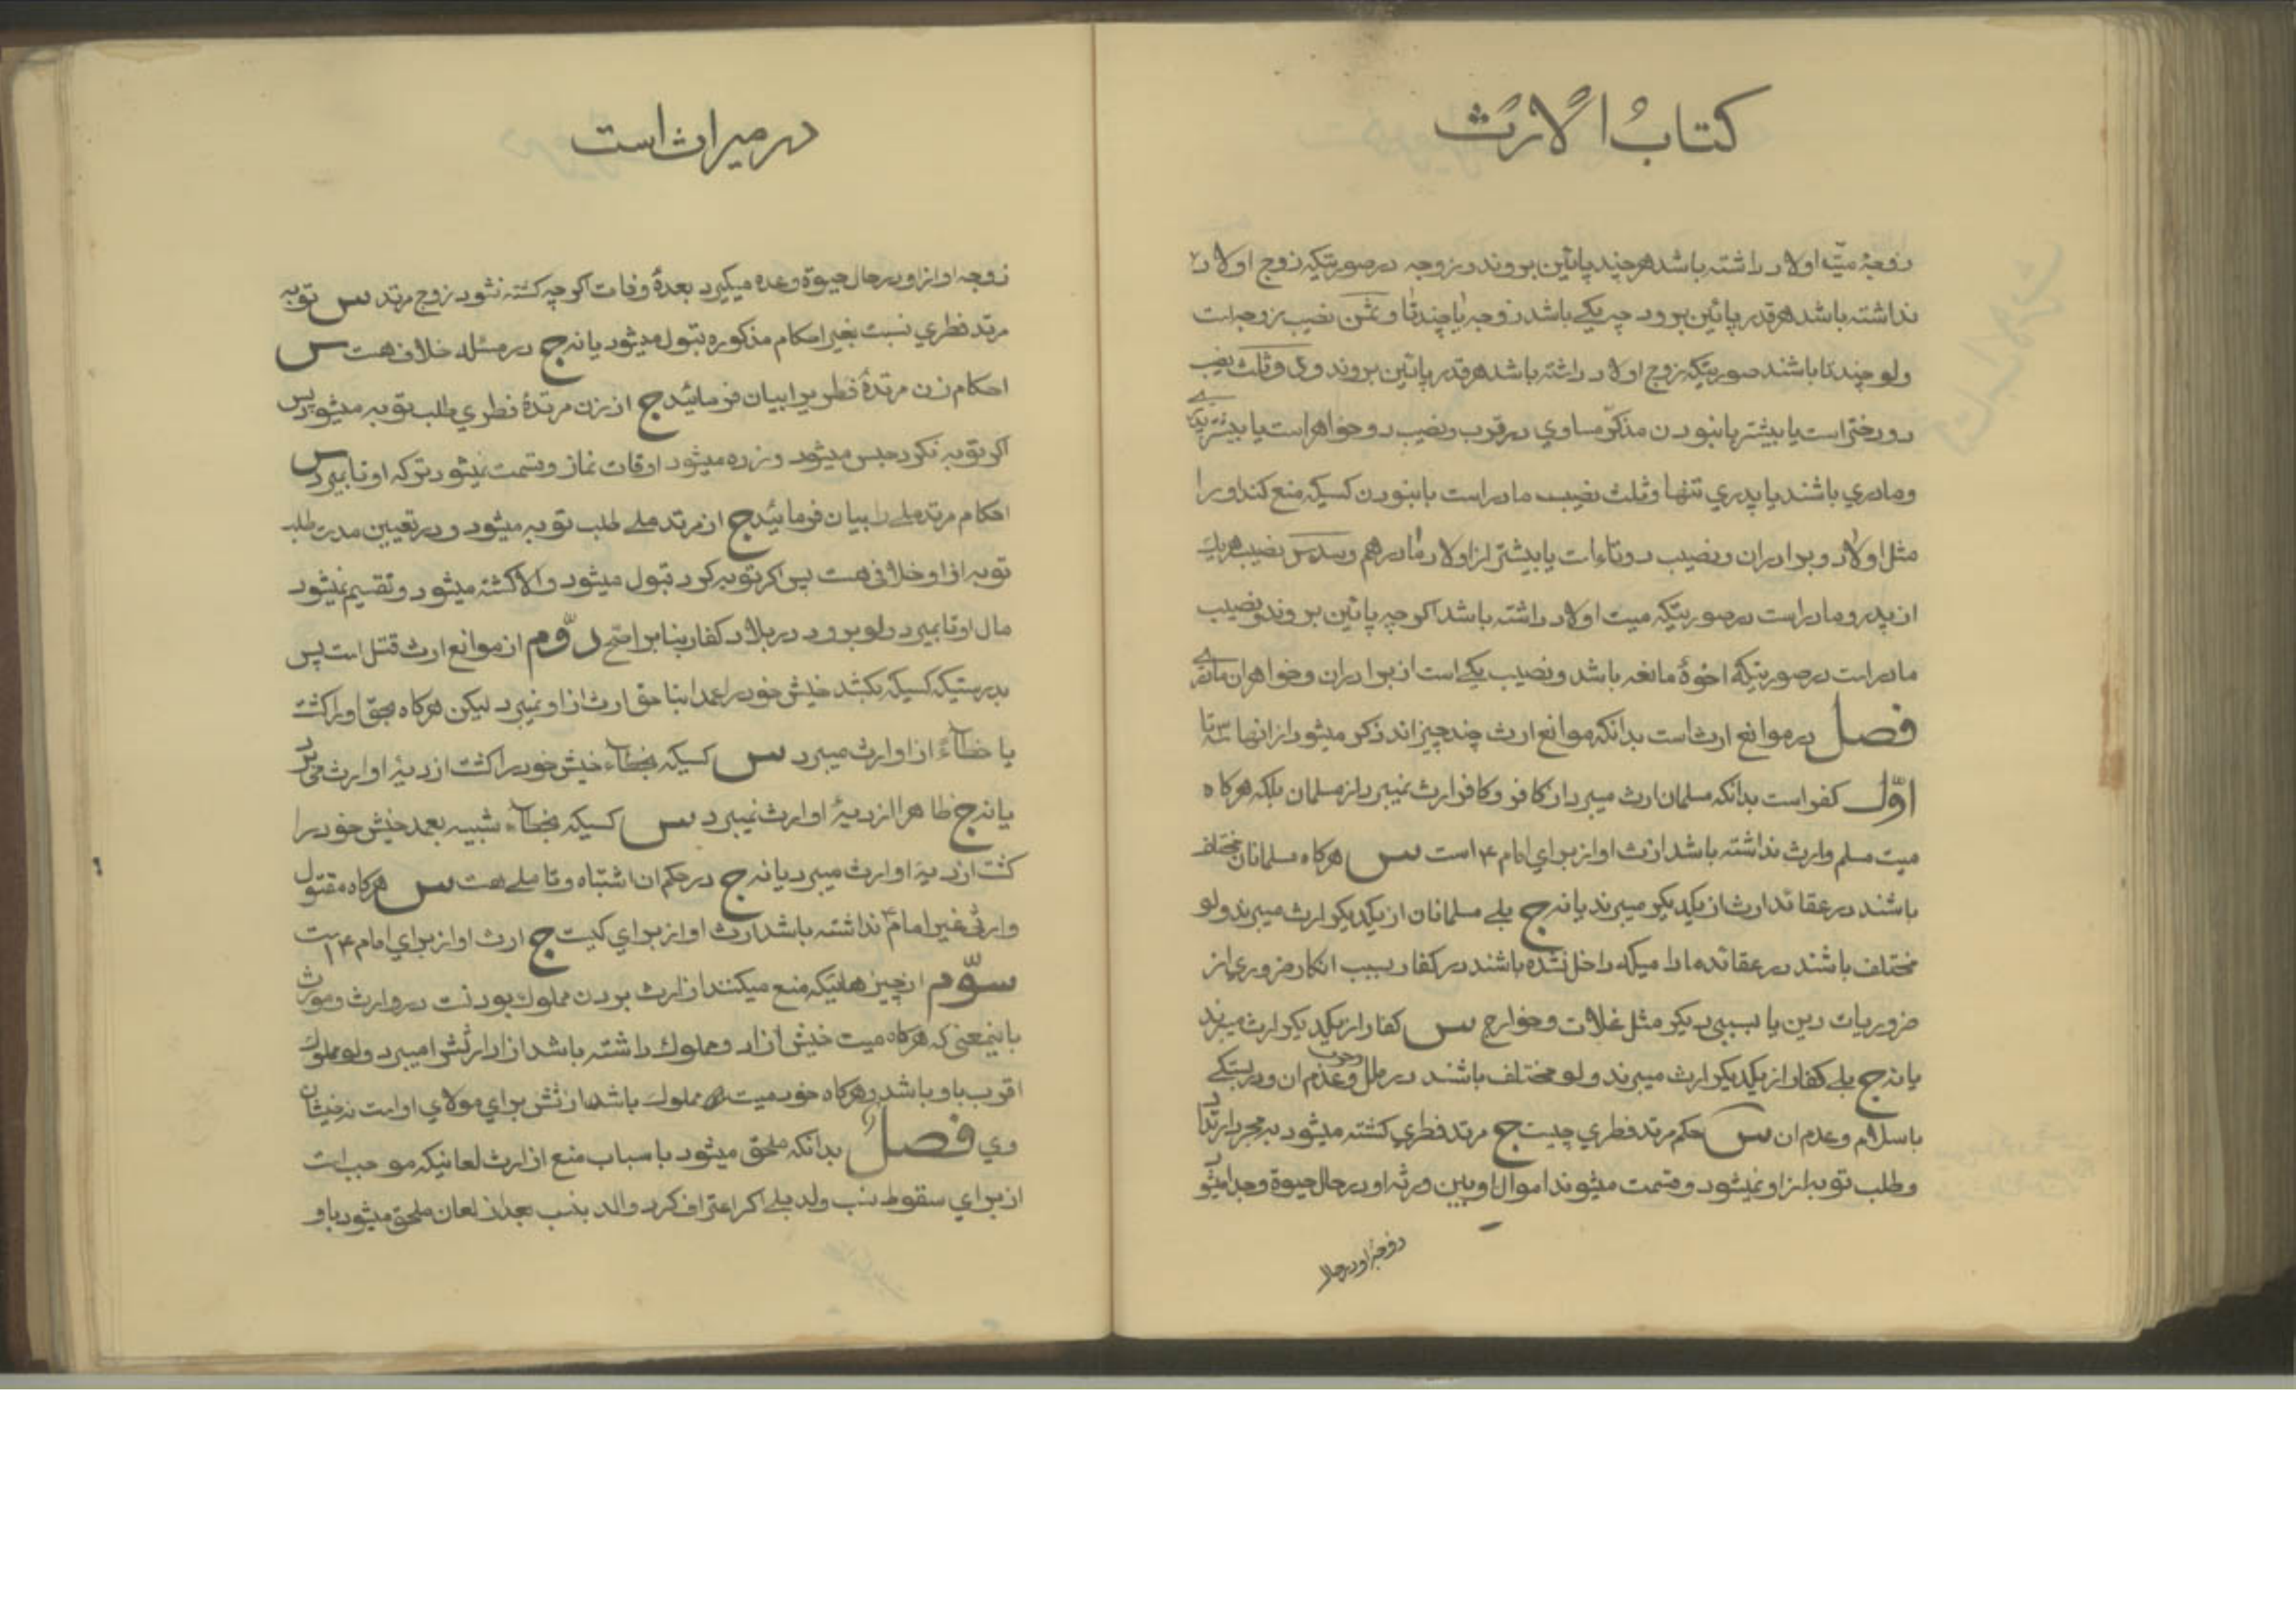 کتابُ الارث
زوجۀ میّت اولاد داشته باشد هر چند پائین بروند در زوجه در صورتیکه زوج اولاد
نداشته باشد هر قدر پائین برود چه یکی باشد زوجه یا چند تا و ثمن نصیب زوجه است
ولو چند تا باشند صورتیکه زوج اولاد داشته باشد هر قدر پائین بروند و دو ثلث نصیب
دو دختر است یا بیشتر با نبودن مذکّر مساوي در قرب و نصیب دو خواهر است یا بیشتر پدري
و مادري باشند یا پدري تنها و ثلث نصیب مادر است با نبودن کسیکه منع کند او را
مثل اولاد و برادران و نصیب دو تاءات یا بیشتر از اولاد مادر هم و سدس نصیب هر یک
از پدر و مادر است در صورتیکه میت اولاد داشته باشد اگر چه پائین بروند و نصیب
مادر است در صورتیکه اخوۀ مانعه باشد و نصیب یکی است از برادران و خواهران مادري
فصل در موانع ارث است بدانکه موانع ارث چند چیز اند ذکر میشود از انها سه تا
اوّل کفر است بدانکه مسلمان ارث میبرد از کافر و کافر ارث نمیبرد از مسلمان بلکه هرکاه
میت مسلم وارث نداشته باشد ارث او از براي امام ع است س هرکاه مسلمانان مختلف
باشند در عقائد ارث از یکدیکر میبرند یا نه ج بلی مسلمانان از یکدیکر ارث میبرند ولو
مختلف باشند در عقائد مادامیکه داخل نشده باشند در کفار بسبب انکار ضروري از
ضروریات دین یا بسببی دیکر مثل غلات و خوارج س کفار از یکدیکر ارث میبرند
یا نه ج بلی کفار از یکدیکر ارث میبرند ولو مختلف باشند در ملل و حرب و عدم ان و در بستکی
باسلام و عدم ان س حکم مرتد فطري چیست ج مرتد فطري کشته میشود بمجرد ارتداد
و طلب توبه از او نمیشود و قسمت میشوند اموال او بین ورثه او در حال حیوة و جدا میشود
زوجۀ او در حال
در میراث است
زوجه او از او در حال حیوة و عده میکیرد بعدۀ وفات اکر چه کشته نشود زوج مرتد س توبه
مرتد فطري نسبت بغیر احکام مذکوره قبول میشود یا نه ج در مسئله خلاف هست س
احکام زن مرتدۀ فطریه را بیان فرمائید ج از زن مرتدۀ فطري طلب توبه میشود پس
اکر توبه نکرد حبس میشود و زده میشود اوقات نماز و قسمت نمیشود ترکه او تا بمیرد س
احکام مرتد ملی را بیان فرمائید ج از مرتد ملی طلب توبه میشود و در تعیین مدت طلب
توبه از او خلافی هست پس اکر توبه کرد قبول میشود والا کشته میشود و تقسیم نمیشود
مال او تا بمیرد ولو برود در بلاد کفار بنا بر اصح دوّم از موانع ارث قتل است پس
بدرستیکه کسیکه بکشد خویش خود را عمدا بنا حق ارث از او نمیبرد لیکن هرکاه بحق او را کشت
یا خطاءً از او ارث میبرد س کسیکه بخطاء خویش خود را کشت از دیۀ او ارث میبرد
یا نه ج ظاهرا از دیۀ او ارث نمیبرد س کسیکه بخطاء شبیه بعمد خویش خود را
کشت از دیۀ او ارث میبرد یا نه ج در حکم ان اشتباه و تاملی هست س هرکاه مقتول
وارثی غیر امام ع نداشته باشد ارث او از براي کیست ج ارث او از براي امام ع است
سوّم از چیزهائیکه منع میکند از ارث بودن مملوک بودنست در وارث و مورث
باینمعنی که هرکاه میت خویش ازاد و مملوک داشته باشد ازاد ارثش را میبرد ولو مملوک
اقرب باو باشد و هرکاه خود میت مملوک باشد ارثش براي مولاي او است نه خویشان
وي فصل بدانکه ملحق میشود باسباب منع از ارث لعانیکه موجب است
از براي سقوط نسب ولد بلی اکر اعتراف کرد والد بنسب بعد از لعان ملحق میشود باو